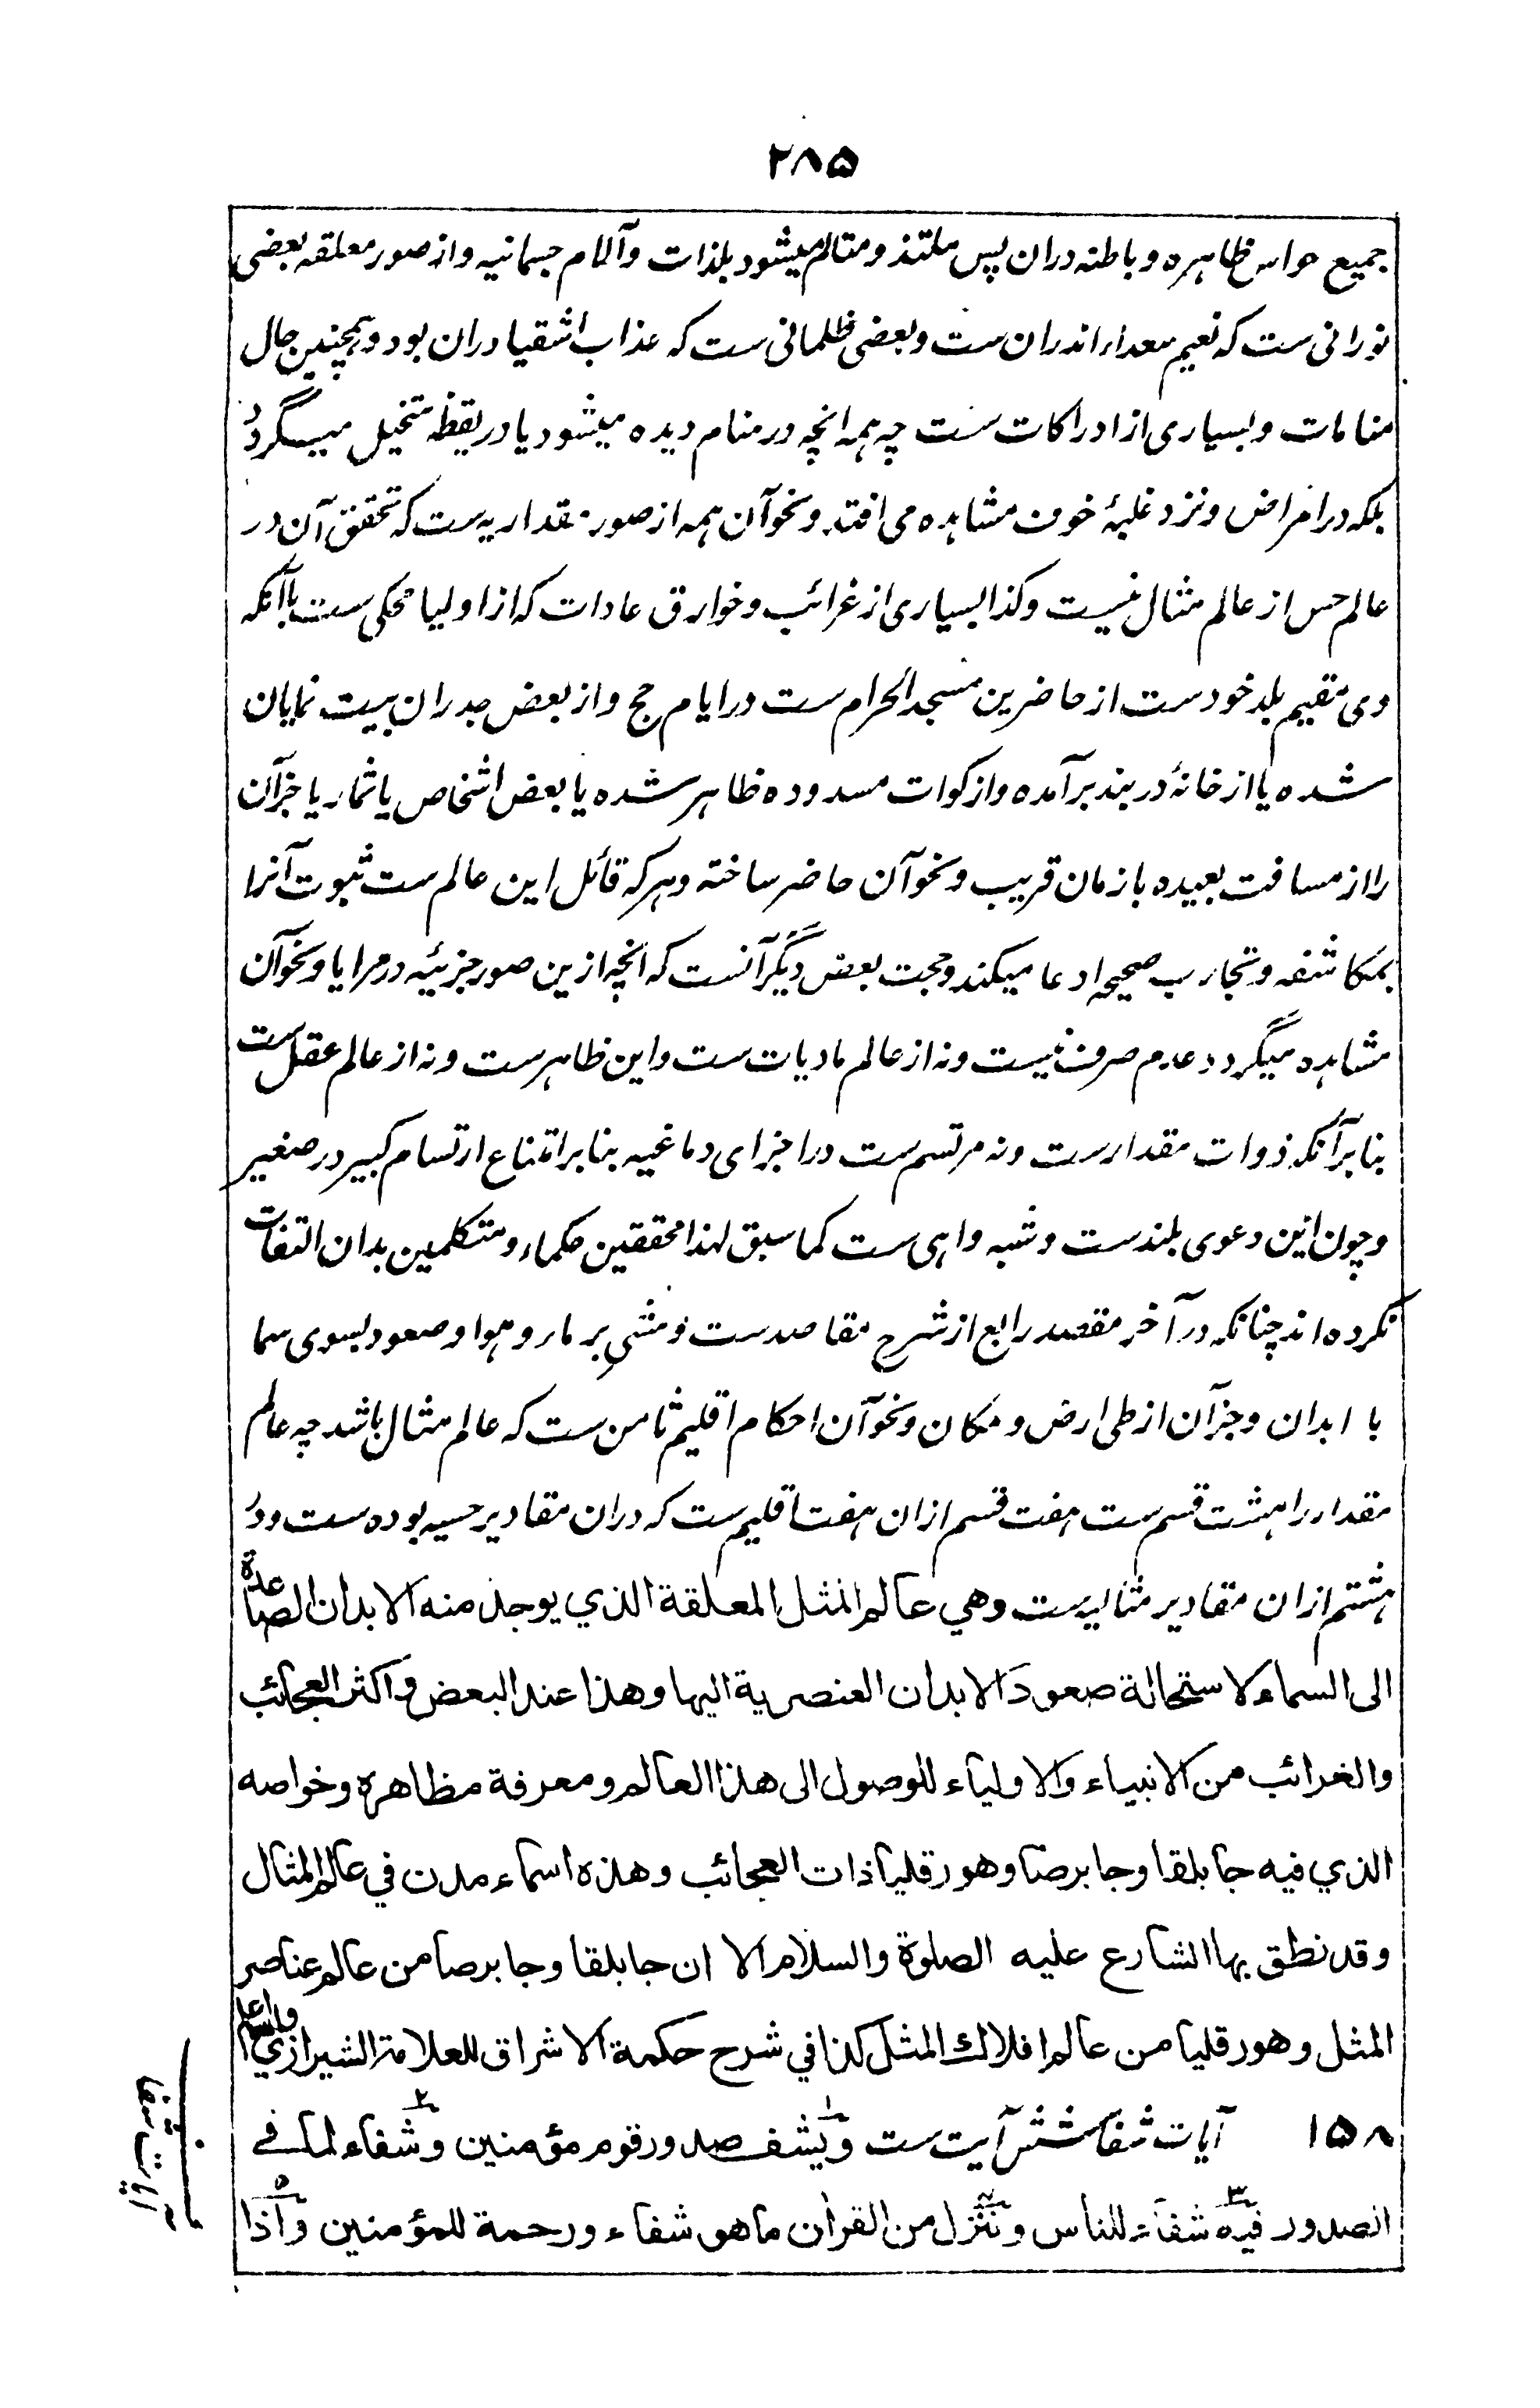 ۲۸۵
جمیع حواس ظاهره و باطنه دران پس ملتذ و متالم میشود بلذات و آلام جسمانیه و از صور معلقه بعضی
نورانی ست که نعیم سعداء اندران ست و بعضی ظلمانی ست که عذاب اشقیا دران بود و همچنین حال
منامات و بسیاری از ادراکات ست چه همه انچه در منام دیده میشود یا در یقظه متخیل میگردد
بلکه در امراض و نزد غلبهٔ خوف مشاهده می افتد و نحو آن همه از صور مقداریه ست که تحقق آن در
عالم حس از عالم مثال نیست و کذا بسیاری از غرائب و خوارق عادات که از اولیا محکی ست باآنکه
وی مقیم بلد خودست از حاضرین مسجد الحرام ست در ایام حج و از بعض جدران بیت نمایان
شده یا از خانهٔ در بند برآمده و از کوات مسدوده ظاهر شده یا بعض اشخاص یا ثمار یا جزآن
را از مسافت بعیده بازمان قریب و نحو آن حاضر ساخته و هر که قائل این عالم ست ثبوت آنرا
بمکاشفه و تجارب صحیحه ادعا میکند و حجت بعض دیگر آنست که انچه ازین صور جزئیه در مرایا و نحو آن
مشاهده میگردد عدم صرف نیست و نه از عالم مادیات ست و این ظاهرست و نه از عالم عقل ست
بنا برآنکه ذوات مقدارست و نه مرتسم ست در اجزای دماغیه بنا بر امتناع ارتسام کبیر در صغیر
و چون این دعوی بلندست و شبه واهی ست کما سبق لهذا محققین حکماء و متکلمین بدان التفات
نکرده اند چنانکه در آخر مقصد رابع از شرح مقاصدست و مشی بر ماء و هوا و صعود بسوی سما
با ابدان و جزآن از طی ارض و مکان و نحو آن احکام اقلیم ثامن ست که عالم مثال باشد چه عالم
مقدار را هشت قسم ست هفت قسم ازان هفت اقلیم ست که دران مقادیر حسیه بوده ست و در
هشتم ازان مقادیر مثالیه ست وهي عالم المثل المعلقة الذي يوجد منه الابدان الصاعدة
الى السماء لاستحالة صعود الابدان العنصرية اليها وهذا عند البعض واكثر العجائب
والغرائب من الانبياء والاولياء للوصول الى هذا العالم ومعرفة مظاهره وخواصه
الذي فيه جابلقا وجابرصا وهورقليا ذات العجائب وهذه اسماء مدن في عالم المثال
وقد نطق بها الشارع عليه الصلوة والسلام الا ان جابلقا وجابرصا من عالم عناصر
المثل وهورقليا من عالم افلاك المثل كذا في شرح حكمة الاشراق للعلامة الشيرازي والله اعلم
۱۵۸ آیات شفا شش آیت ست ۱ ويشف صدور قوم مؤمنين ۲ وشفاء لما في
الصدور ۳ فيه شفاء للناس ۴ وننزل من القرأن ما هو شفاء ورحمة للمؤمنين ۵ واذا
آیات شفا